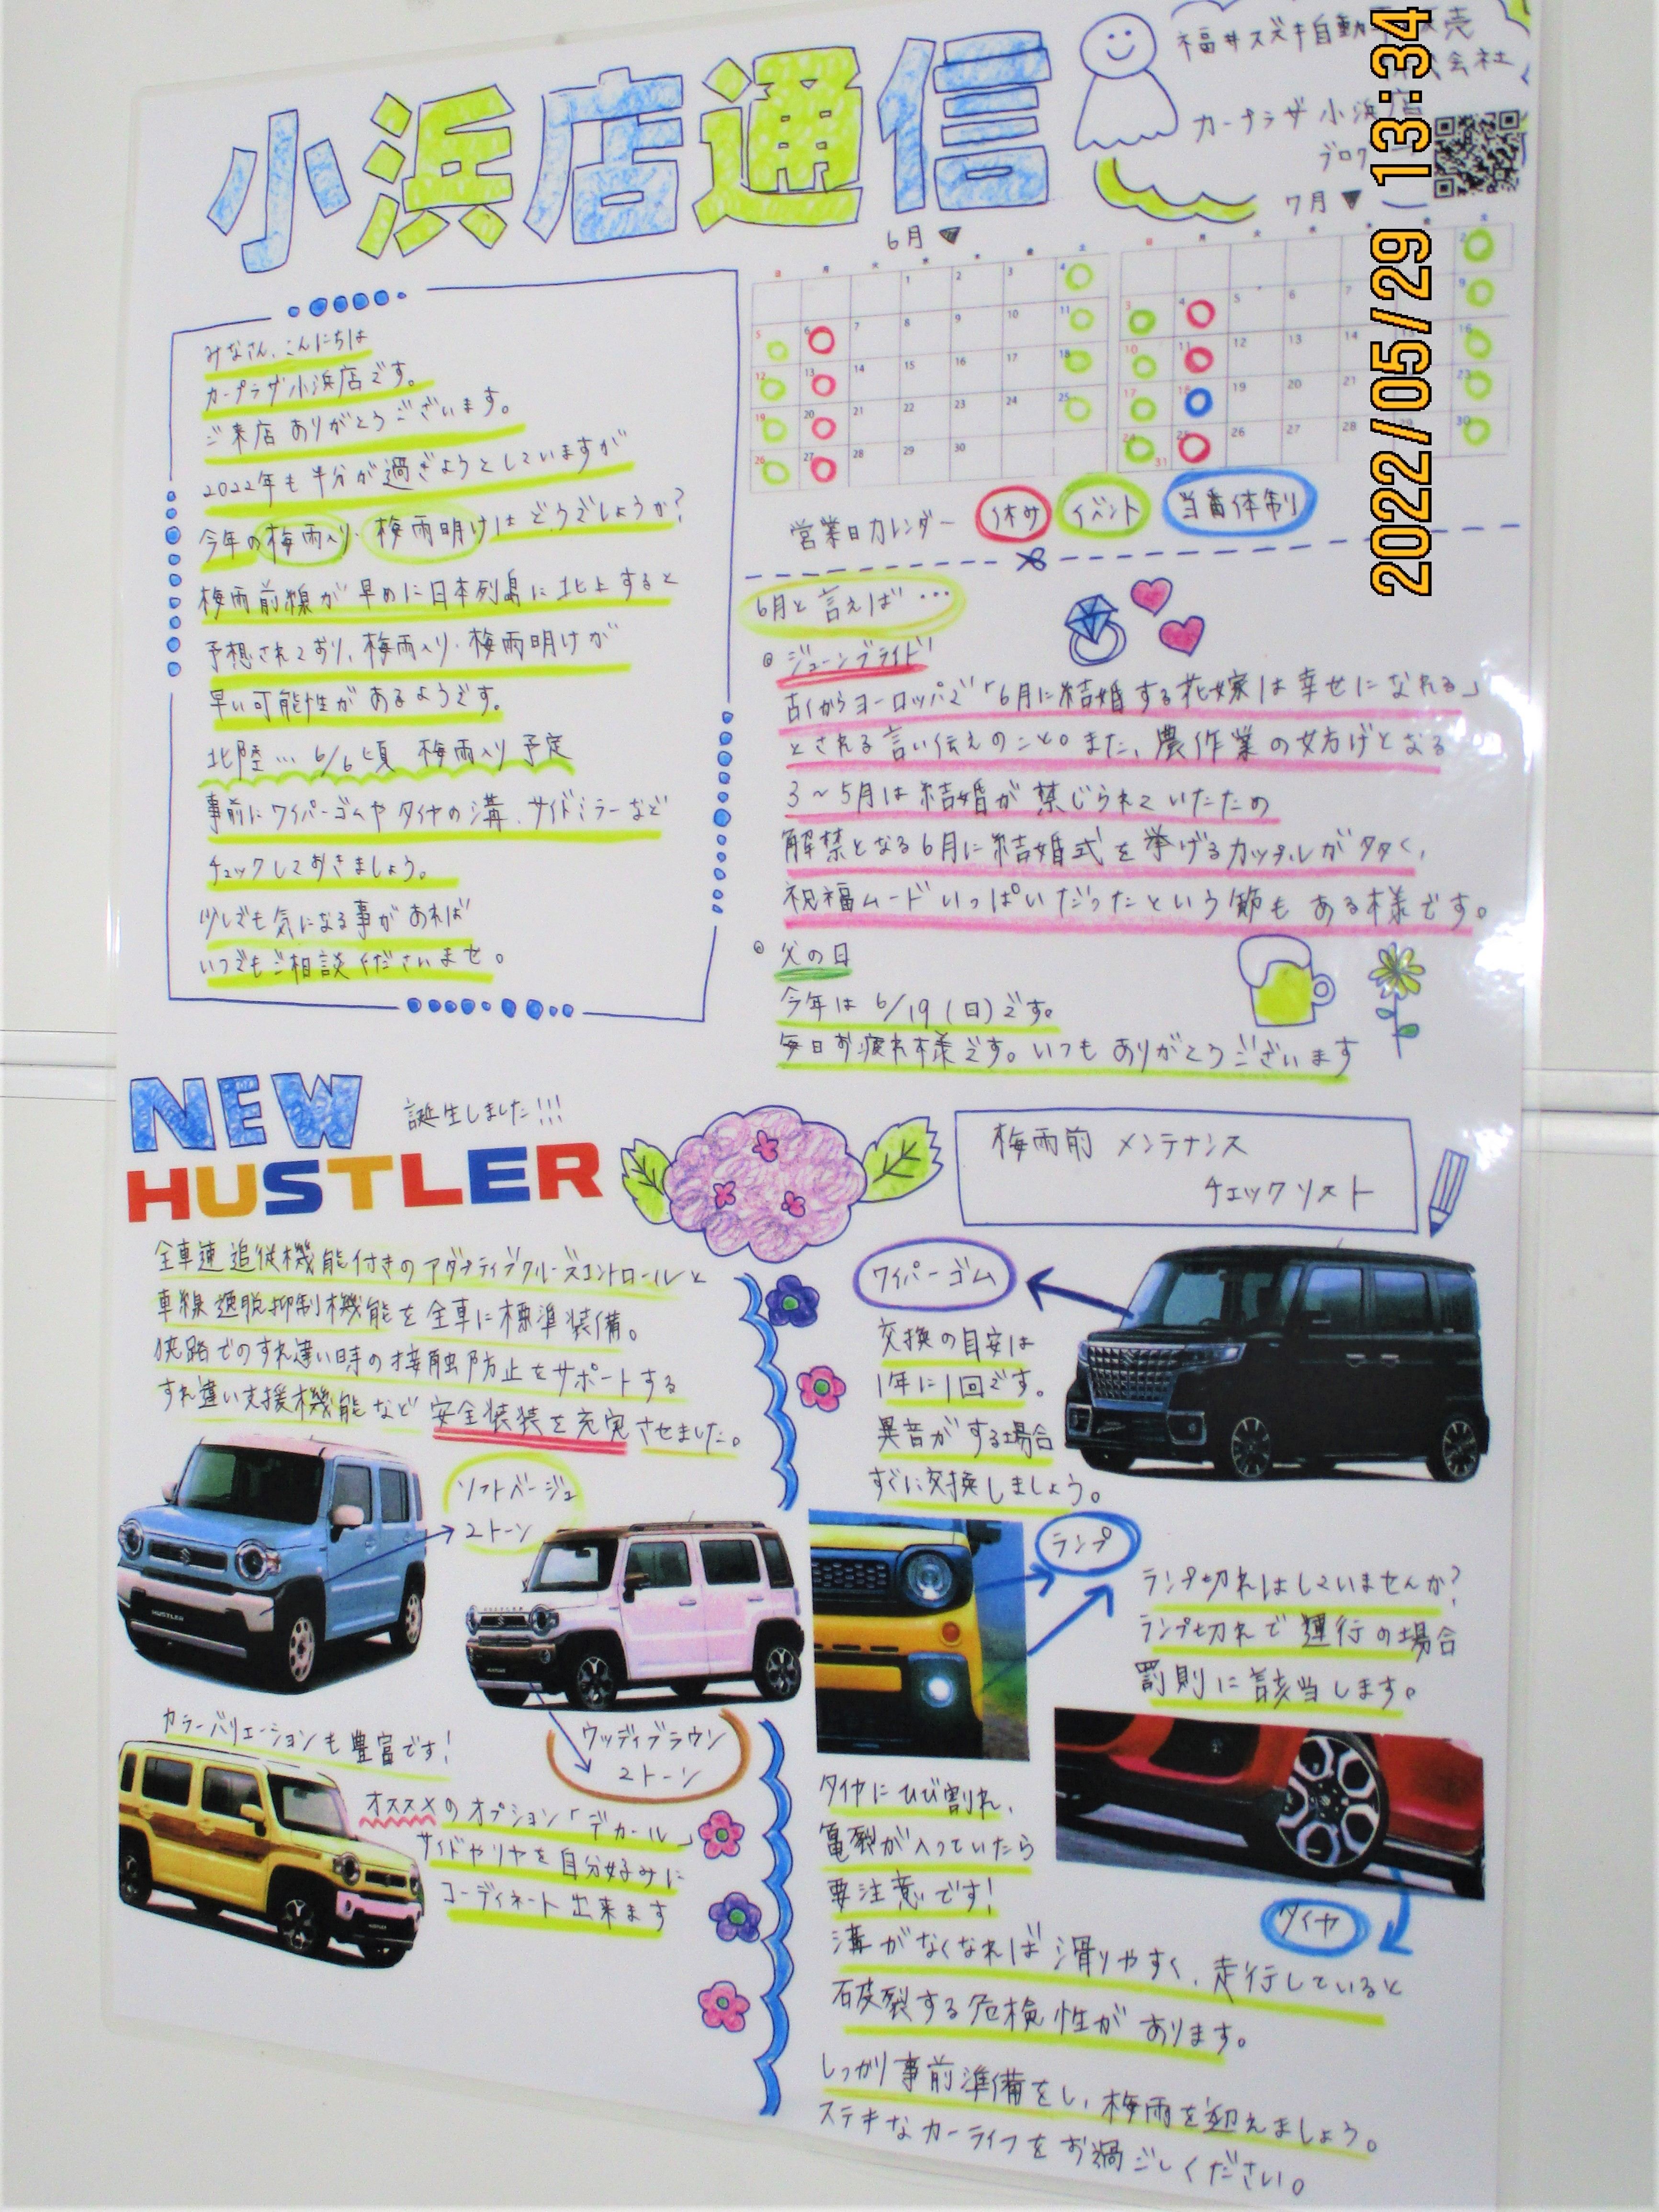 小浜店通信
福井スズキ自動車販売
会社
カープラザ小浜店
ブログ
2022/05/29 13:34
みなさん、こんにちは
カープラザ小浜店です。
ご来店ありがとうございます。
2022年も半分が過ぎようとしていますが
今年の梅雨入り・梅雨明けはどうでしょうか?
梅雨前線が早めに日本列島に北上すると
予想されており、梅雨入り・梅雨明けが
早い可能性があるようです。
北陸… 6/6頃 梅雨入り予定
事前にワイパーゴムやタイヤの溝、サイドミラーなど
チェックしておきましょう。
少しでも気になる事があれば
いつでもご相談くださいませ。
6月▼
日 月 火 水 木 金 土
1 2 3 4
5 6 7 8 9 10 11
12 13 14 15 16 17 18
19 20 21 22 23 24 25
26 27 28 29 30
7月▼
日 月 火 水 木 金 土
2
3 4 5 6 7 9
10 11 12 13 14 15 16
17 18 19 20 21 23
24 25 26 27 28 29 30
31
営業日カレンダー 休み イベント 当番体制
6月と言えば…
◎ジューンブライド
古くからヨーロッパで「6月に結婚する花嫁は幸せになれる」
とされる言い伝えのこと。また、農作業の妨げとなる
3~5月は結婚が禁じられていたため
解禁となる6月に結婚式を挙げるカップルが多く、
祝福ムードいっぱいだったという節もある様です。
◎父の日
今年は6/19(日)です。
毎日お疲れ様です。いつもありがとうございます
NEW
HUSTLER
誕生しました!!!
全車速追従機能付きのアダプティブクルーズコントロールと
車線逸脱抑制機能を全車に標準装備。
狭路でのすれ違い時の接触防止をサポートする
すれ違い支援機能など安全装装を充実させました。
ソフトベージュ
2トーン
ウッディブラウン
2トーン
カラーバリエーションも豊富です!
オススメのオプション「デカール」
サイドやリヤを自分好みに
コーディネート出来ます
梅雨前 メンテナンス
チェックリスト
ワイパーゴム
交換の目安は
1年に1回です。
異音がする場合
すぐに交換しましょう。
ランプ
ランプ切れはしていませんか?
ランプ切れで運行の場合
罰則に該当します。
タイヤにひび割れ、
亀裂が入っていたら
要注意です!
タイヤ
溝がなくなれば滑りやすく、走行していると
破裂する危険性があります。
しっかり事前準備をし、梅雨を迎えましょう。
ステキなカーライフをお過ごしください。